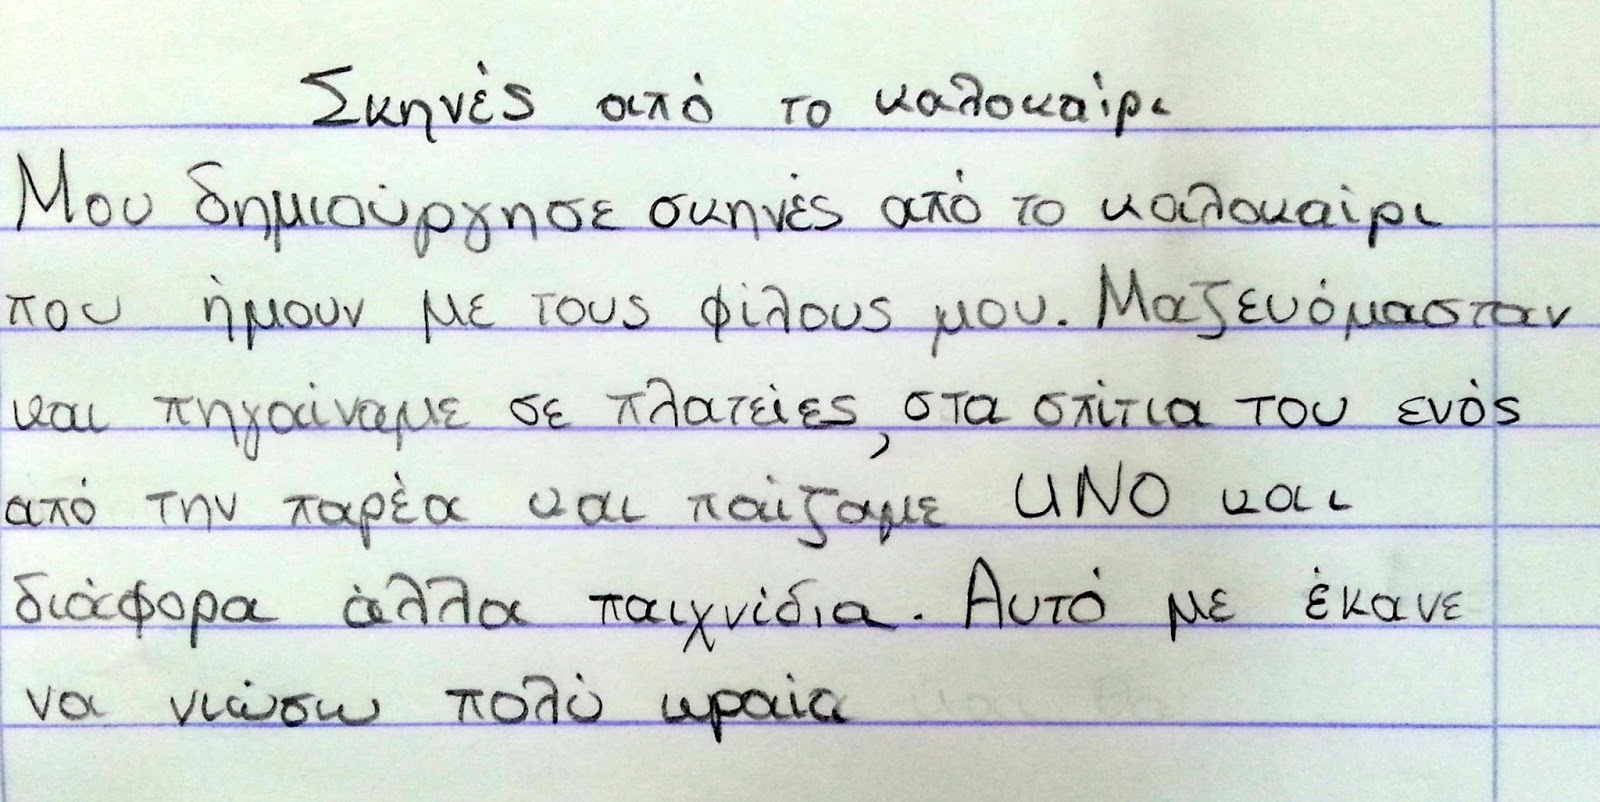 Σκηνές από το καλοκαίρι
Μου δημιούργησε σκηνές από το καλοκαίρι
που ήμουν με τους φίλους μου. Μαζευόμασταν
και πηγαίναμε σε πλατείες, στα σπίτια του ενός
από την παρέα και παίζαμε UNO και
διάφορα άλλα παιχνίδια. Αυτό με έκανε
να νιώσω πολύ ωραία